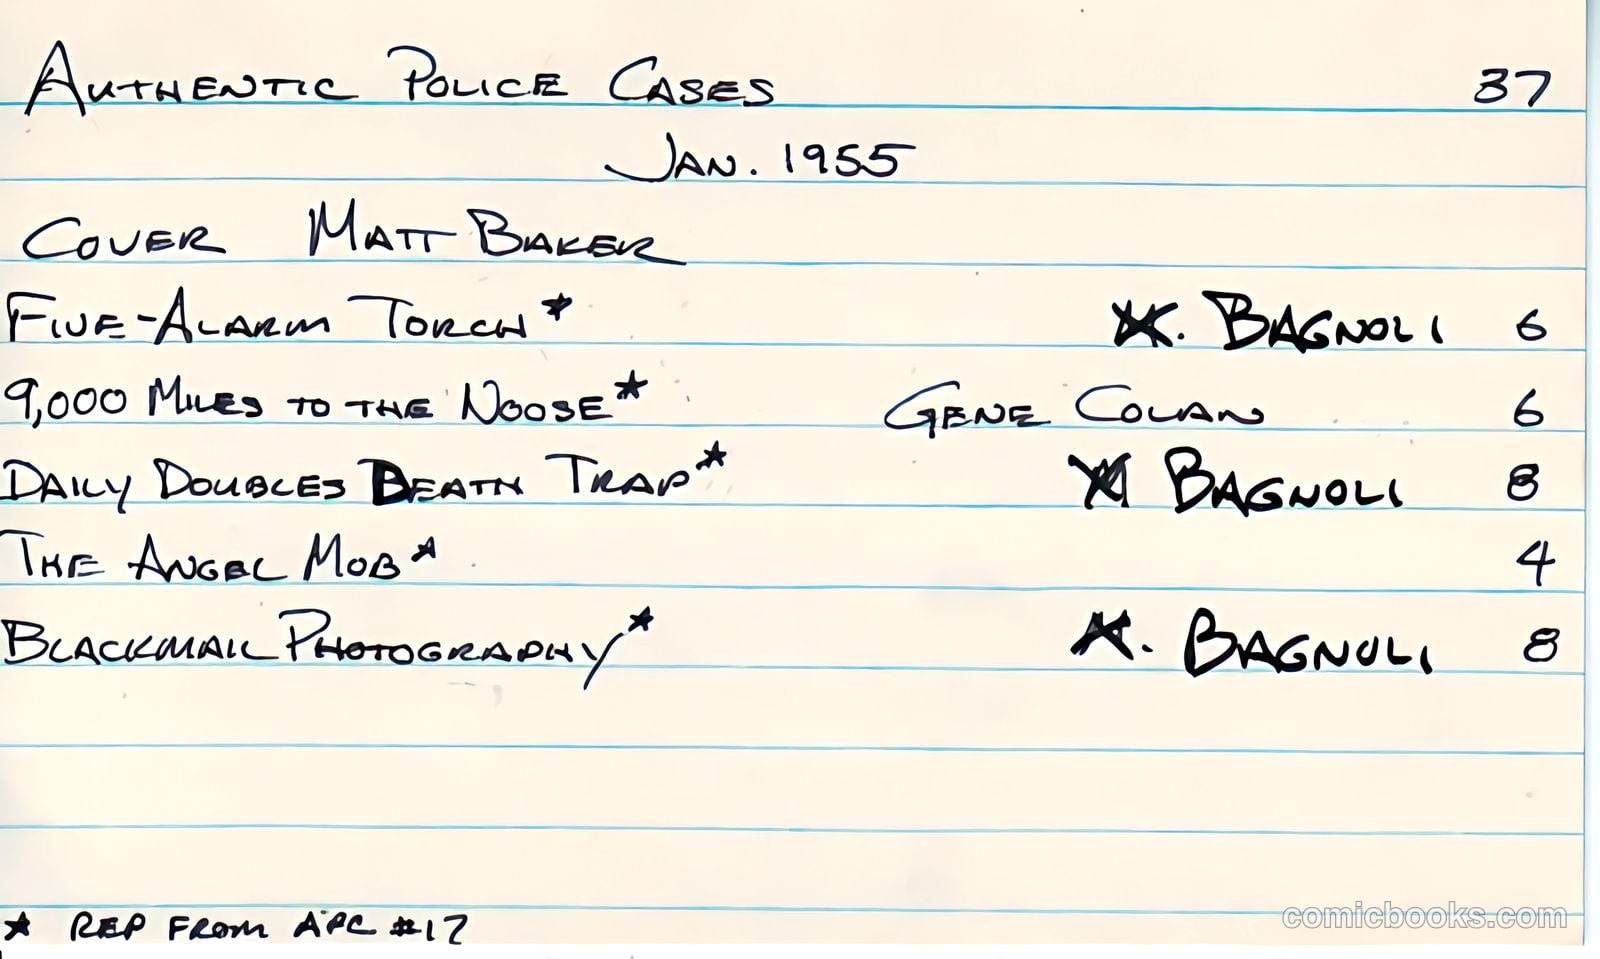 AUTHENTIC POLICE CASES 37
JAN. 1955
COVER MATT BAKER
FIVE-ALARM TORCH★ . BAGNOLI 6
9,000 MILES TO THE NOOSE★ GENE COLAN 6
DAILY DOUBLES DEATH TRAP★ BAGNOLI 8
THE ANGEL MOB★ 4
BLACKMAIL PHOTOGRAPHY★ . BAGNOLI 8
★ REP FROM APC #17
comicbooks.com